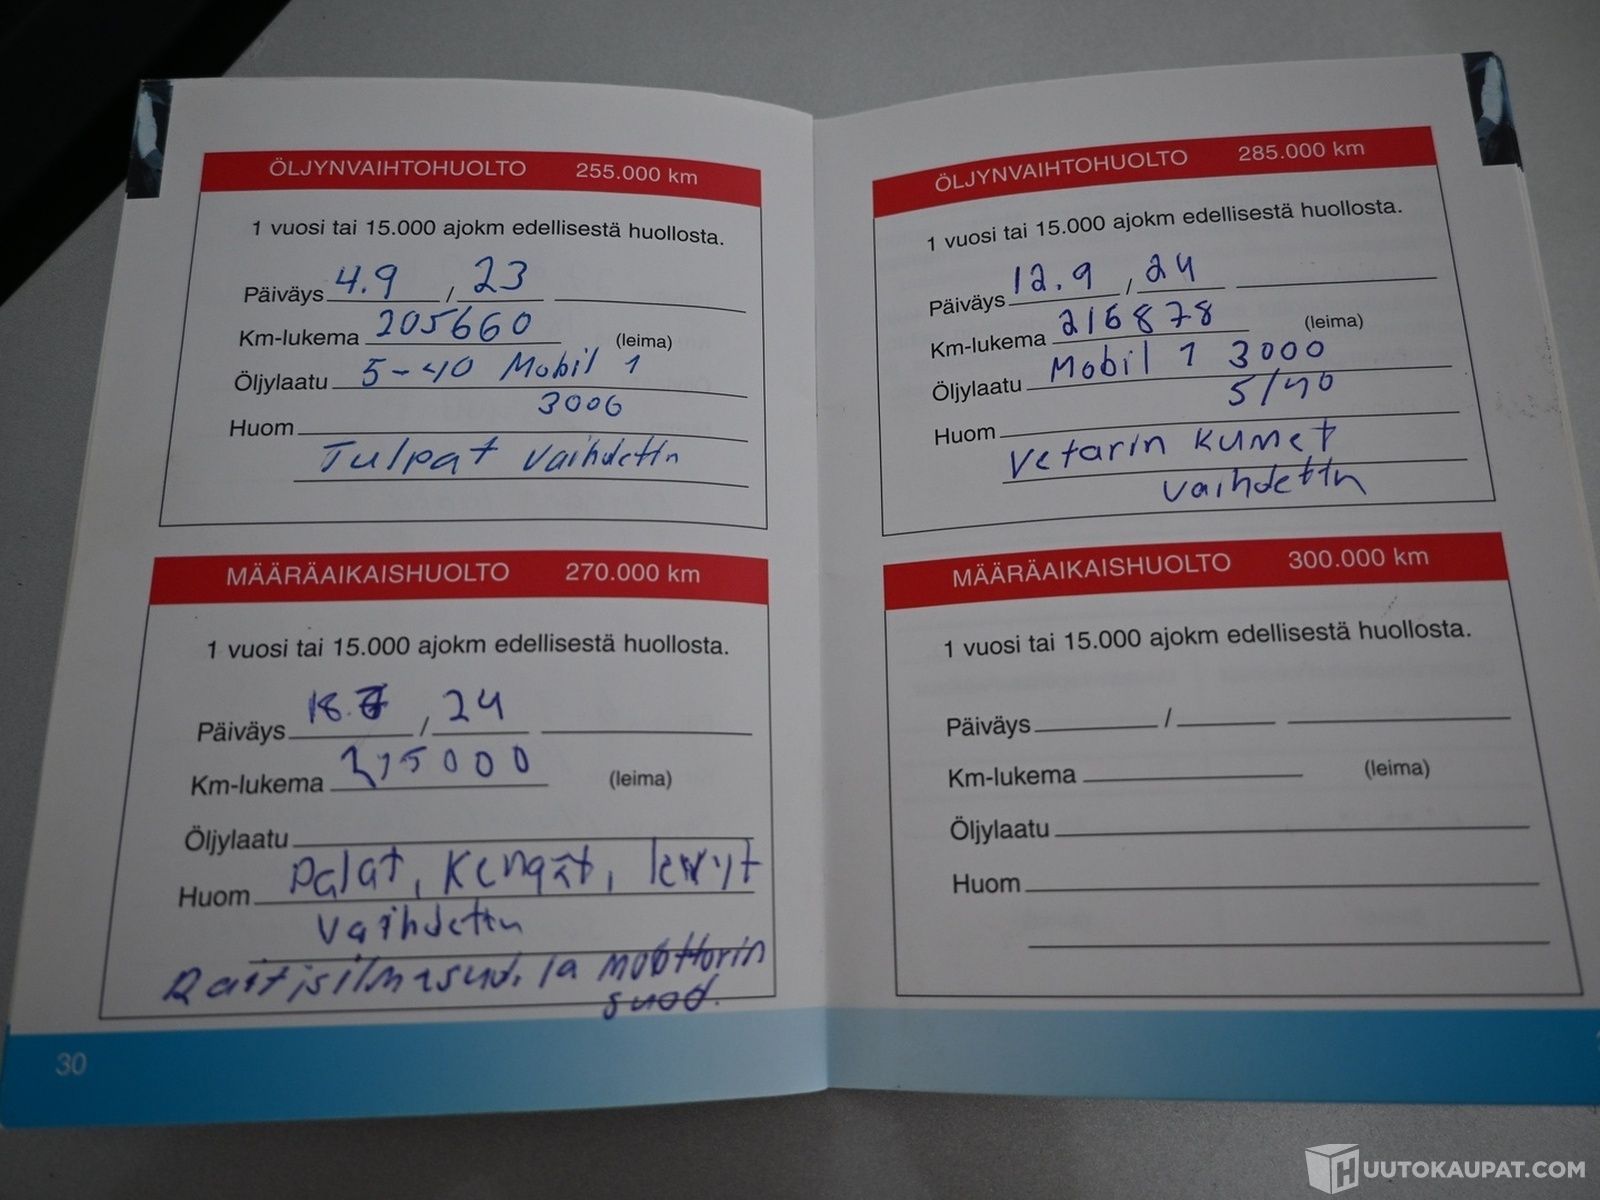 ÖLJYNVAIHTOHUOLTO 255.000 km
1 vuosi tai 15.000 ajokm edellisestä huollosta.
Päiväys 4.9 / 23
Km-lukema 205660 (leima)
Öljylaatu 5-40 Mobil 1
3000
Huom
Tulpat vaihdettu
MÄÄRÄAIKAISHUOLTO 270.000 km
1 vuosi tai 15.000 ajokm edellisestä huollosta.
Päiväys 18. / 24
Km-lukema 215000 (leima)
Öljylaatu
Huom Palat, Kengät, levyt
vaihdettu
Raitisilmasuod. ja moottorin
suod.
30
ÖLJYNVAIHTOHUOLTO 285.000 km
1 vuosi tai 15.000 ajokm edellisestä huollosta.
Päiväys 12.9 / 24
Km-lukema 216878 (leima)
Öljylaatu Mobil 1 3000
5/40
Huom
Vetarin kumet
vaihdettu
MÄÄRÄAIKAISHUOLTO 300.000 km
1 vuosi tai 15.000 ajokm edellisestä huollosta.
Päiväys /
Km-lukema (leima)
Öljylaatu
Huom
HUUTOKAUPAT.COM